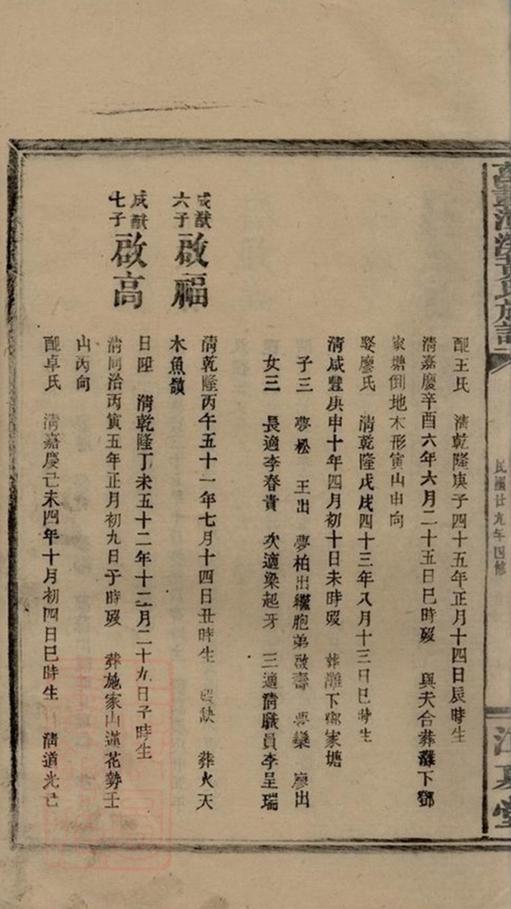 民國廿九年四修
江夏堂
配王氏 清乾隆庚子四十五年正月十四日辰時生
清嘉慶辛酉六年六月二十五日巳時歿 與夫合葬灘下鄧
家塘倒地木形寅山申向
娶廖氏 清乾隆戊戌四十三年八月十三日巳時生
清咸豐庚申十年四月初十日未時歿 葬灘下鄧家塘
子三 夢松 王出 夢柏出繼胞弟啟壽 夢欒 廖出
女三 長適李春貴 次適梁起牙 三適清職員李呈瑞
成猷六子 啟福
清乾隆丙午五十一年七月十四日丑時生 歿缺 葬火天
木魚嶺
成猷七子 啟高
日陞 清乾隆丁未五十二年十二月二十九日子時生
清同治丙寅五年正月初九日子時歿 葬施家山蓮花勢壬
山丙向
配卓氏 清嘉慶己未四年十月初四日巳時生 清道光己